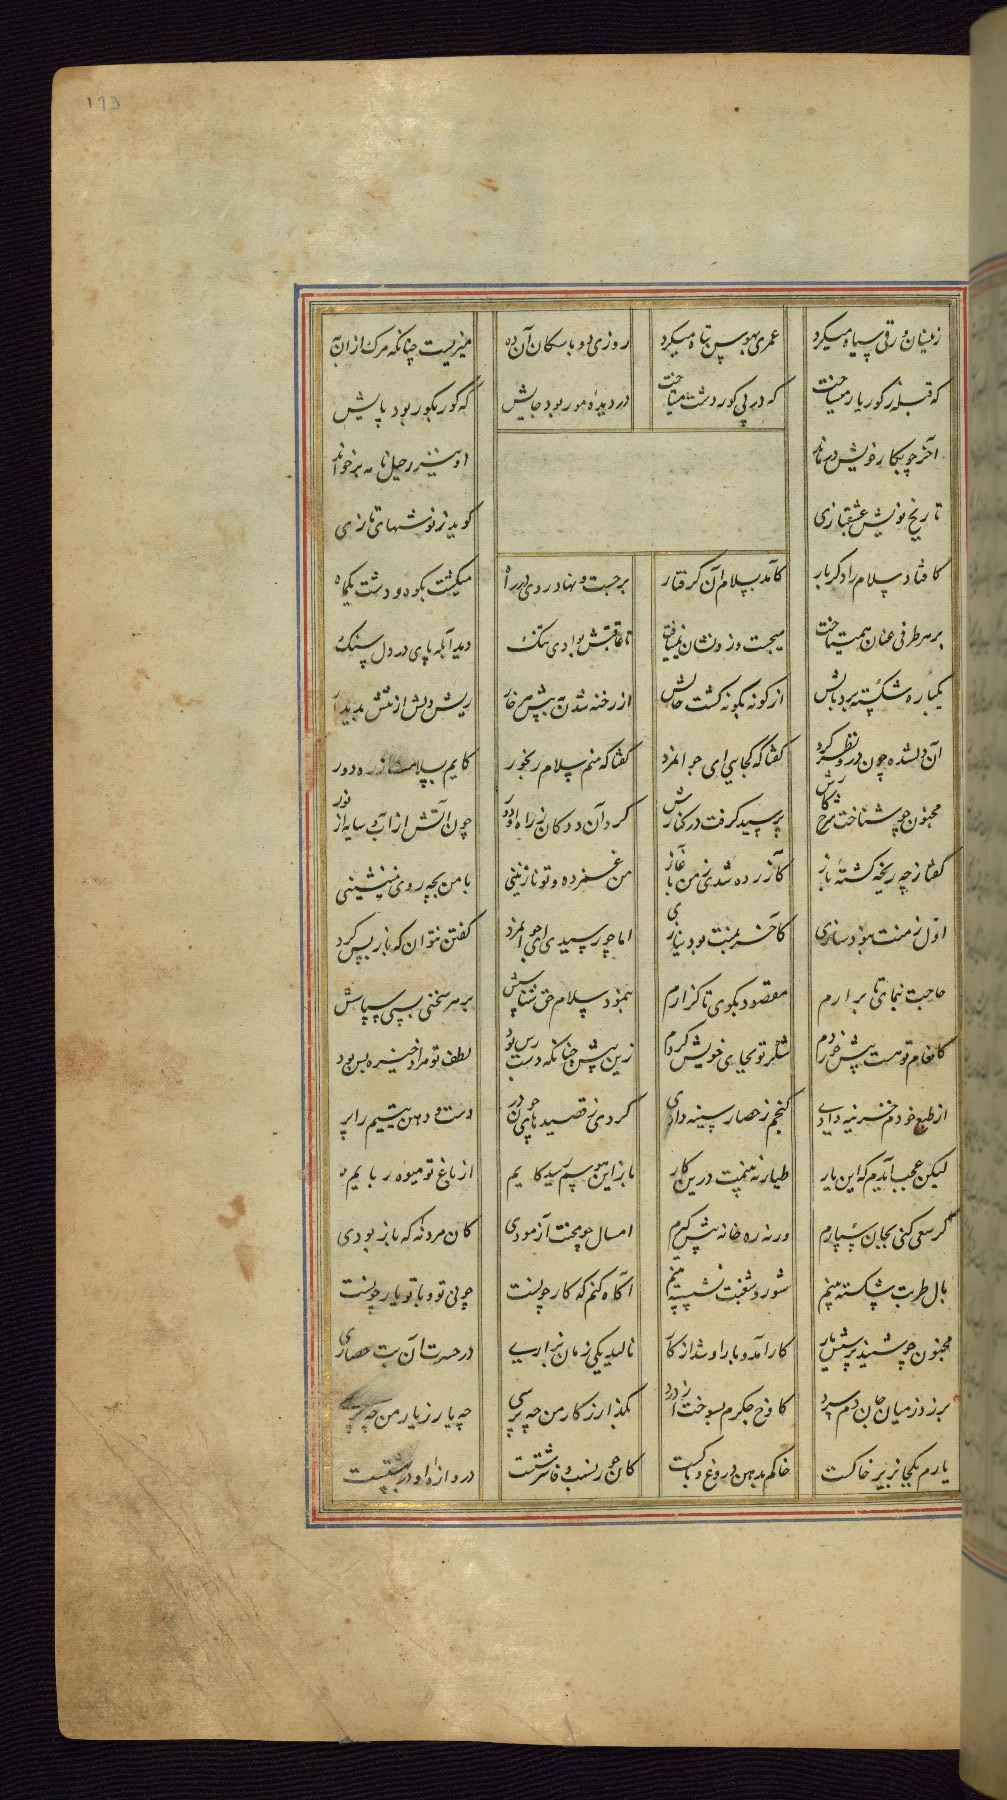 173
زینسان ورقی سیاه میکرد عمری بهوس تباه میکرد روزی دو با سکان آن ده میزیست چنانکه مرک از آن به
که قبله ز کور یار میساخت که در پی کور دشت میتاخت در دیدهٔ مور بود جایش که کور بکور بود پایش
آخر چو بکار خویش درماند او نیز رحیل نامه برخواند
تاریخ نویس عشقبازی کوید ز نوشتهای تازی
کافتاد سلام را دکر بار کآمد بسلام آن کرفتار برجست و نهاد روی در راه میکشت بکوه و دشت یکماه
بر هر طرفی عنان همیتاخت میجست وزو نشان نمییافت تا عاقبتش بوادی تنک دید آبله پای در دل سنک
یکباره شکسته برد بالش از کونه بکونه کشت حالش از رخنه شدن بپیش هر خار ریش دلش از تنش پدیدار
آن دلشده چون درو نظر کرد کفتا که کجایی ای جوانمرد کفتا که منم سلام رنجور کایم بسلامت از ره دور
مجنون چو شناخت برخ کارش پرسید کرفت در کنارش کرد آن دد کان ز راه او دور چون آتش از آب و سایه از نور
کفتا ز چه رنجه کشتهٔ باز کآزرده شدی ز من بآغاز من غمزده و تو نازنینی با من بچه روی مینشینی
اول ز منت نبود سازی کآخر بمنت بود نیازی اما چو رسیدی ای جوانمرد کفتن نتوان که باز پس کرد
حاجت بنمای تا برآرم مقصود بکوی تا کزارم بنمود سلام حق شناسش بر هر سخنی بسی سپاسش
کانعام تو هست پیش خوردم شکر تو بجای خویش کردم زین پیش چنانکه دسترس بود لطف تو مرا ذخیره بس بود
از طبع خودم خزینه دادی کنجم ز حصار سینه دادی کردی ز قصیدهای چون در دست و دهن یتیم را پر
لیکن عجب آیدم که این بار طیار نه بینمت درین کار باز این هوسم رسید کایم از باغ تو میوهٔ ربایم
کر سعی کنی بجان سپارم ورنه ره خانه پیش کیرم امسال چو محنت آزمودی کان مرد نهٔ که باز بودی
بال طربت شکسته بینم شور و شغبت نشسته بینم آکاه کنم که کار چونست چونی تو و با تو یار چونست
مجنون چو شنید پرسش یار کار آمد و بار او شد از کار نالید یکی زمان بزاری در حسرت آن بت حصاری
برزد ز میان جان دم سرد کاوخ جکرم بسوخت از درد بکذار ز کار من چه پرسی چه یار ز یار من چه پرسی
یارم بکجا بزیر خاکست خاکم بدهن دروغ و باکست کان حور نسب و فا سرشتست دروازهٔ او در بهشتست